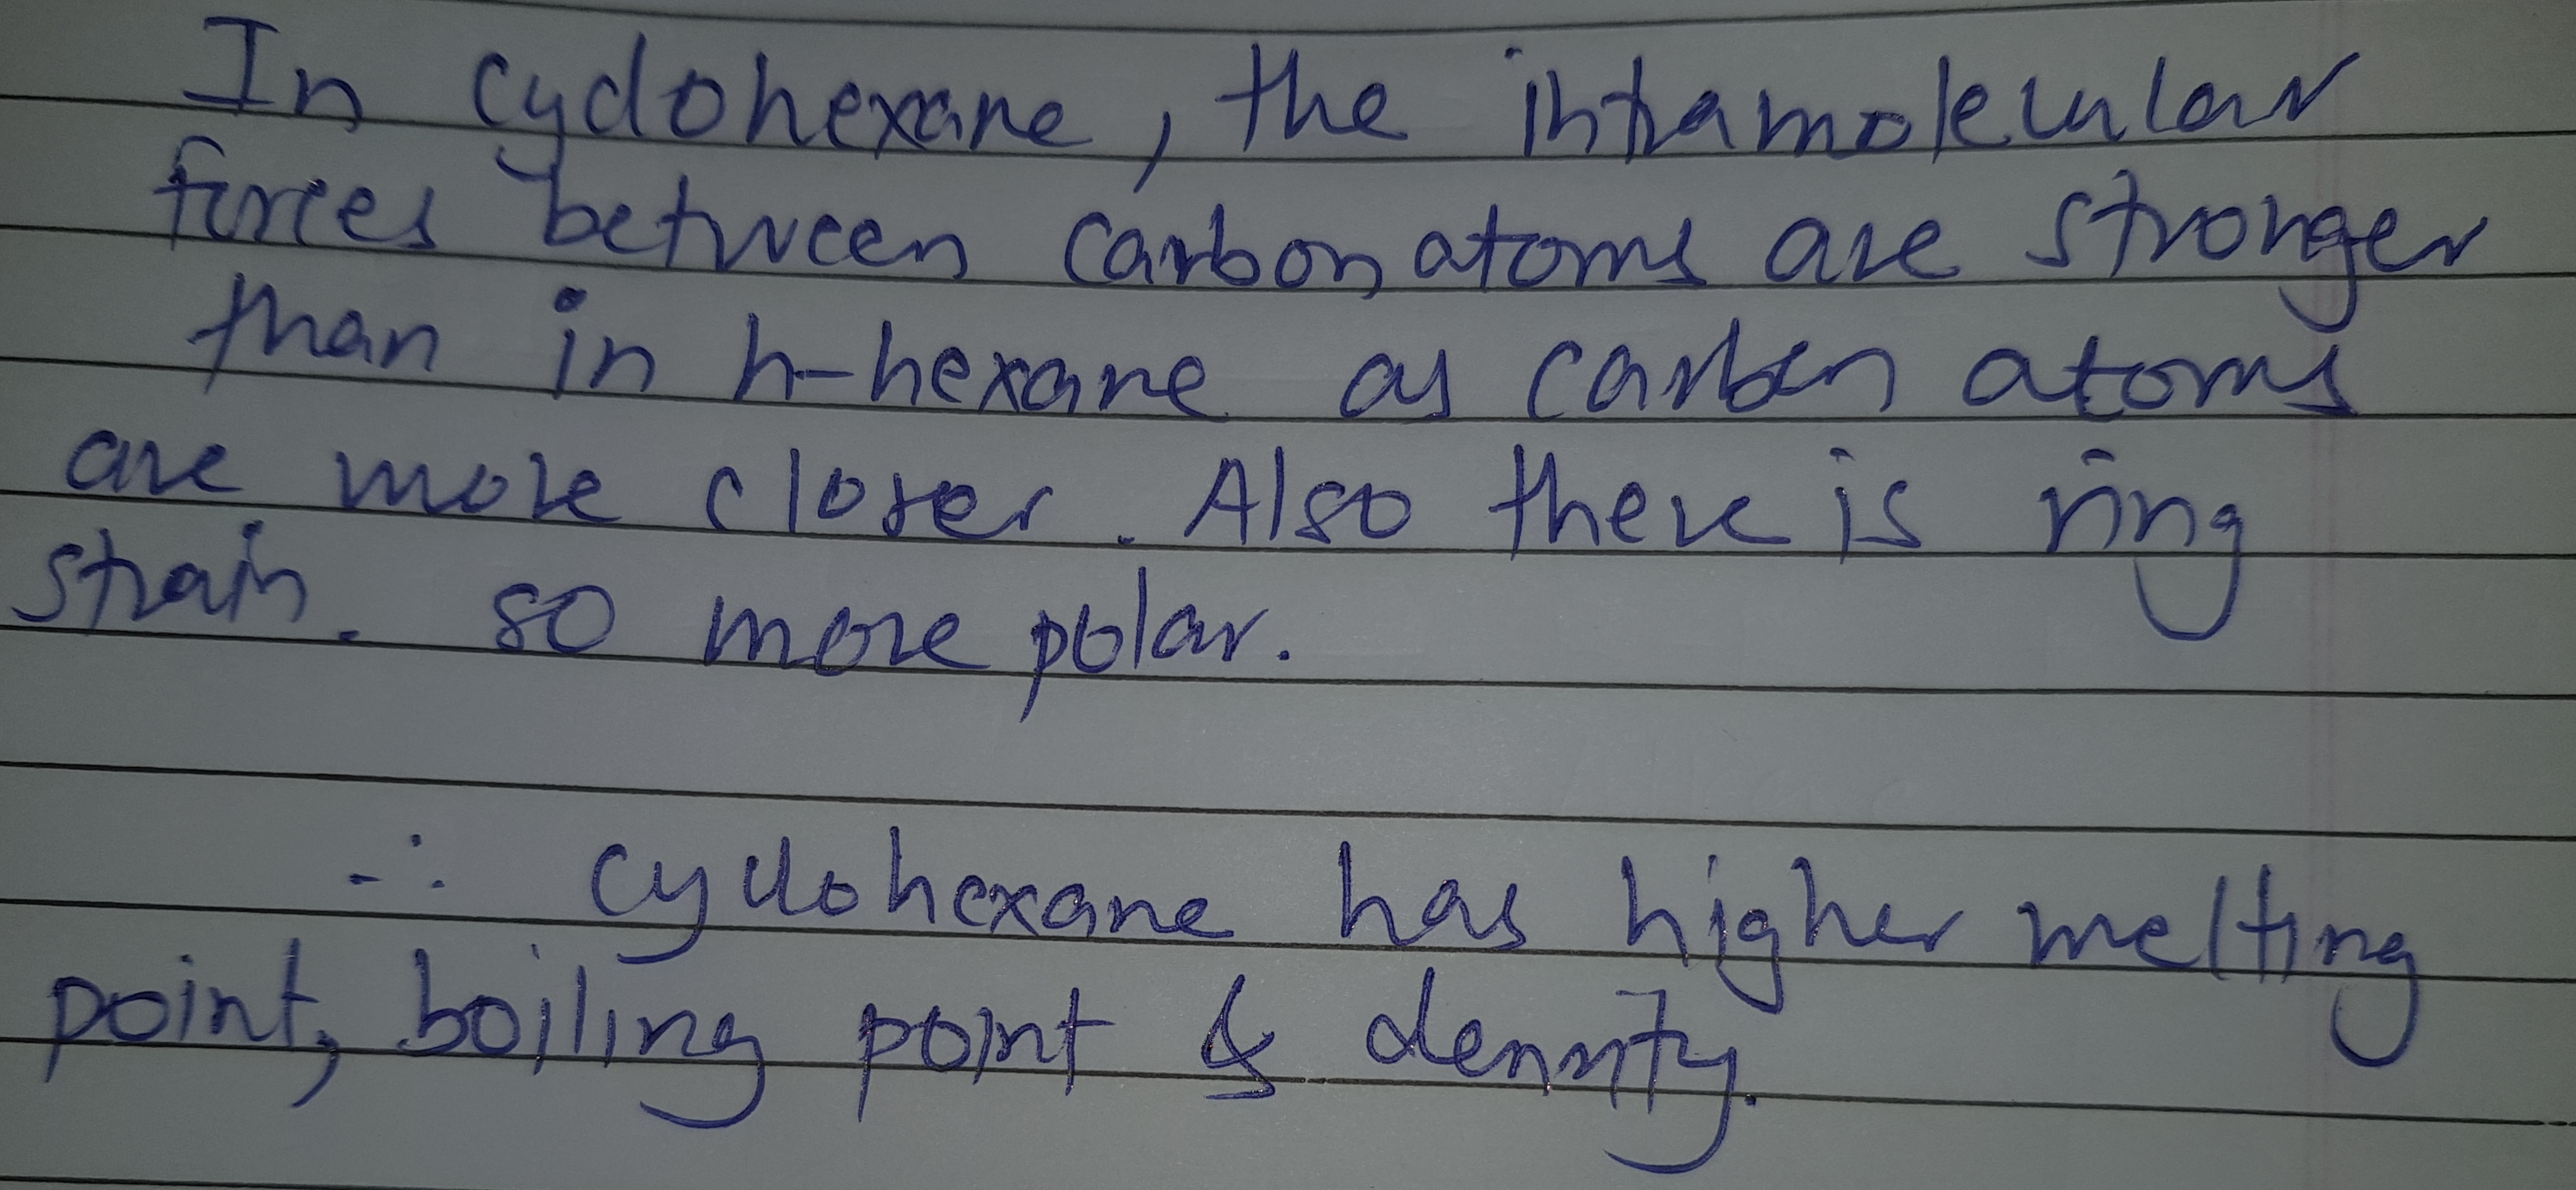 In cyclohexane, the intramolecular
forces between carbon atoms are stronger
than in n-hexane as carbon atoms
are more closer. Also there is ring
strain. so more polar.
∴ cyclohexane has higher melting
point, boiling point & density.